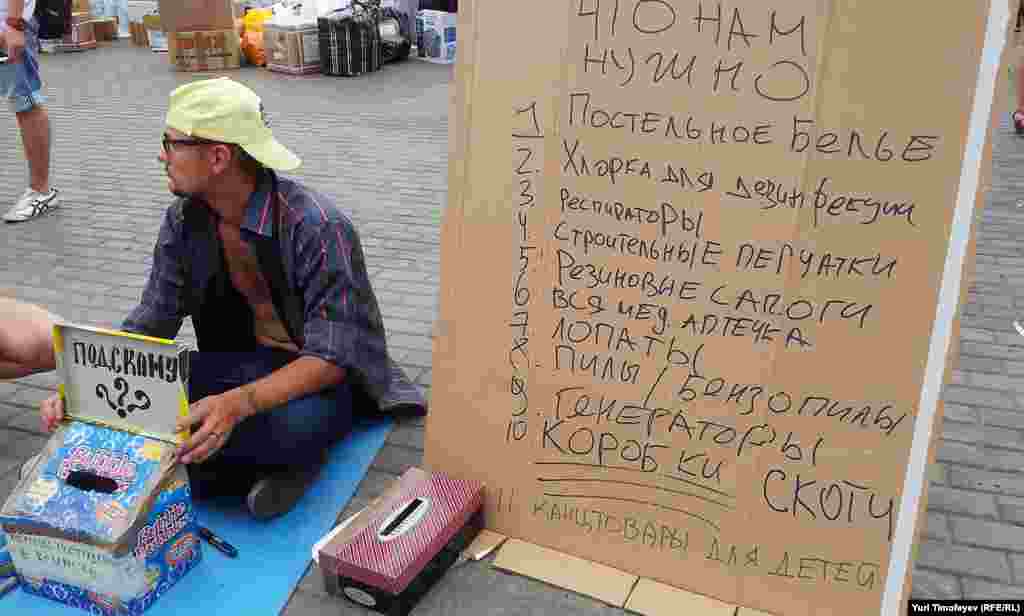 ЧТО НАМ
НУЖНО
1 Постельное Белье
2. Хлорка для дезинфекции
3. Респираторы
4. Строительные перчатки
5. Резиновые сапоги
6. Вся мед. аптечка
7. Лопаты
8. Пилы / Бензопилы
9. Генераторы
10 Коробки скотч
11 канцтовары для детей
ПОДСКАЖУ
??
Yuri Timofeyev (RFE/RL)